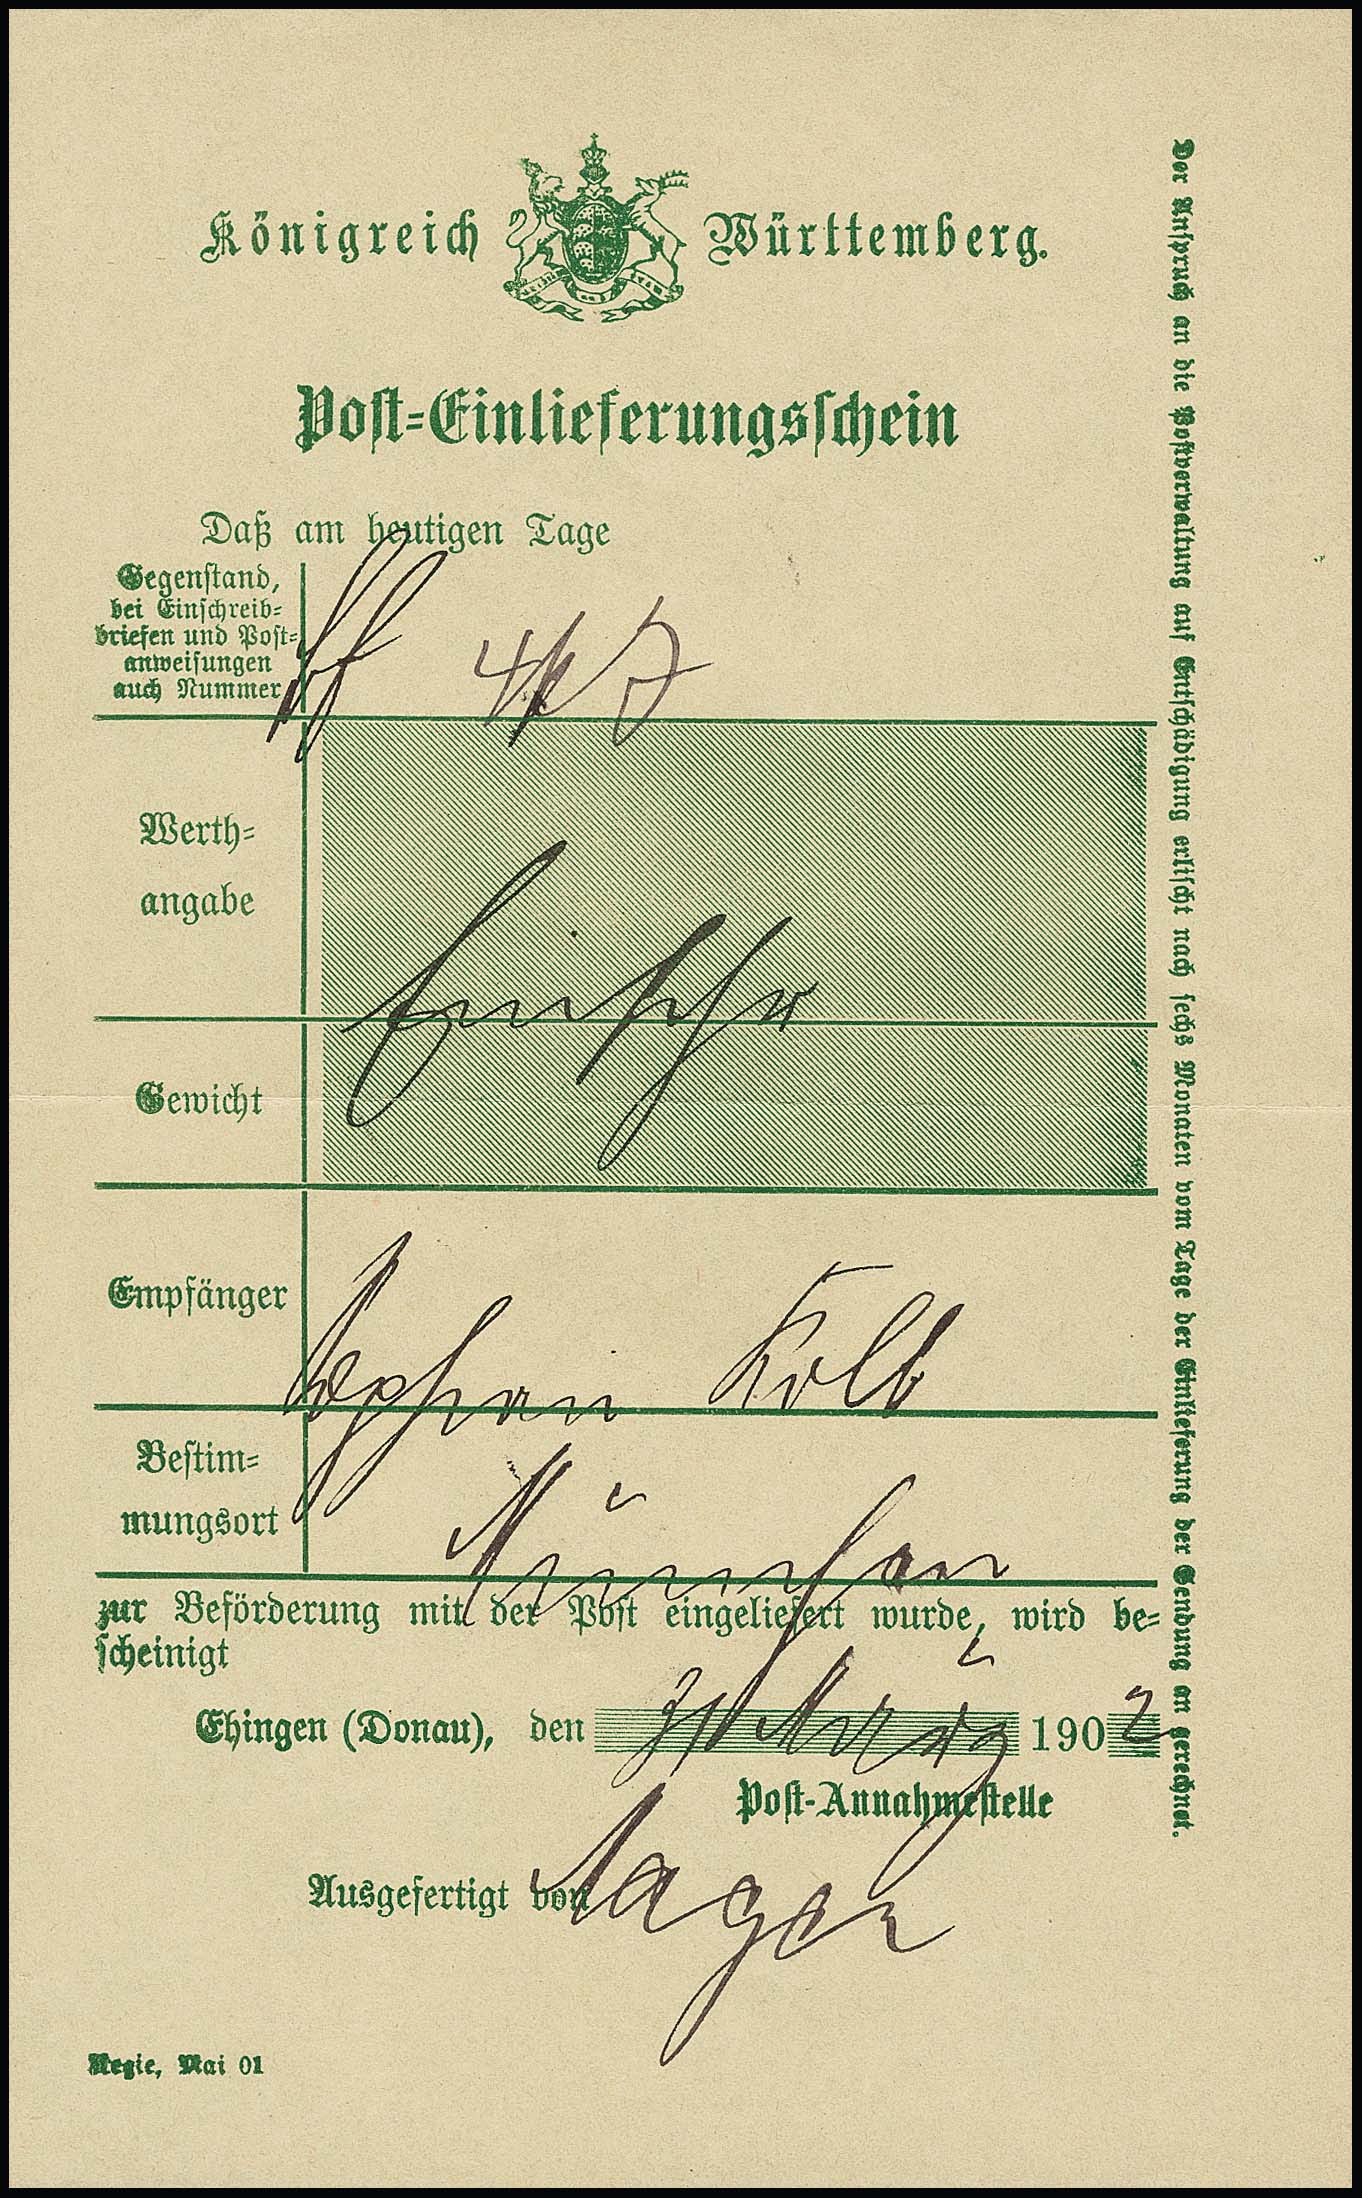 Königreich Württemberg.
Post-Einlieferungsschein
Daß am heutigen Tage
Gegenstand,
bei Einschreib-
briefen und Post-
anweisungen
auch Nummer
Werth-
angabe
Gewicht
Empfänger
Kolb
Bestim-
mungsort
München
zur Beförderung mit der Post eingeliefert wurde, wird be-
scheinigt
Ehingen (Donau), den 31 März 1902
Post-Annahmestelle
Ausgefertigt von
Regie, Mai 01
Der Anspruch an die Postverwaltung auf Entschädigung erlischt nach sechs Monaten vom Tage der Einlieferung der Sendung an gerechnet.